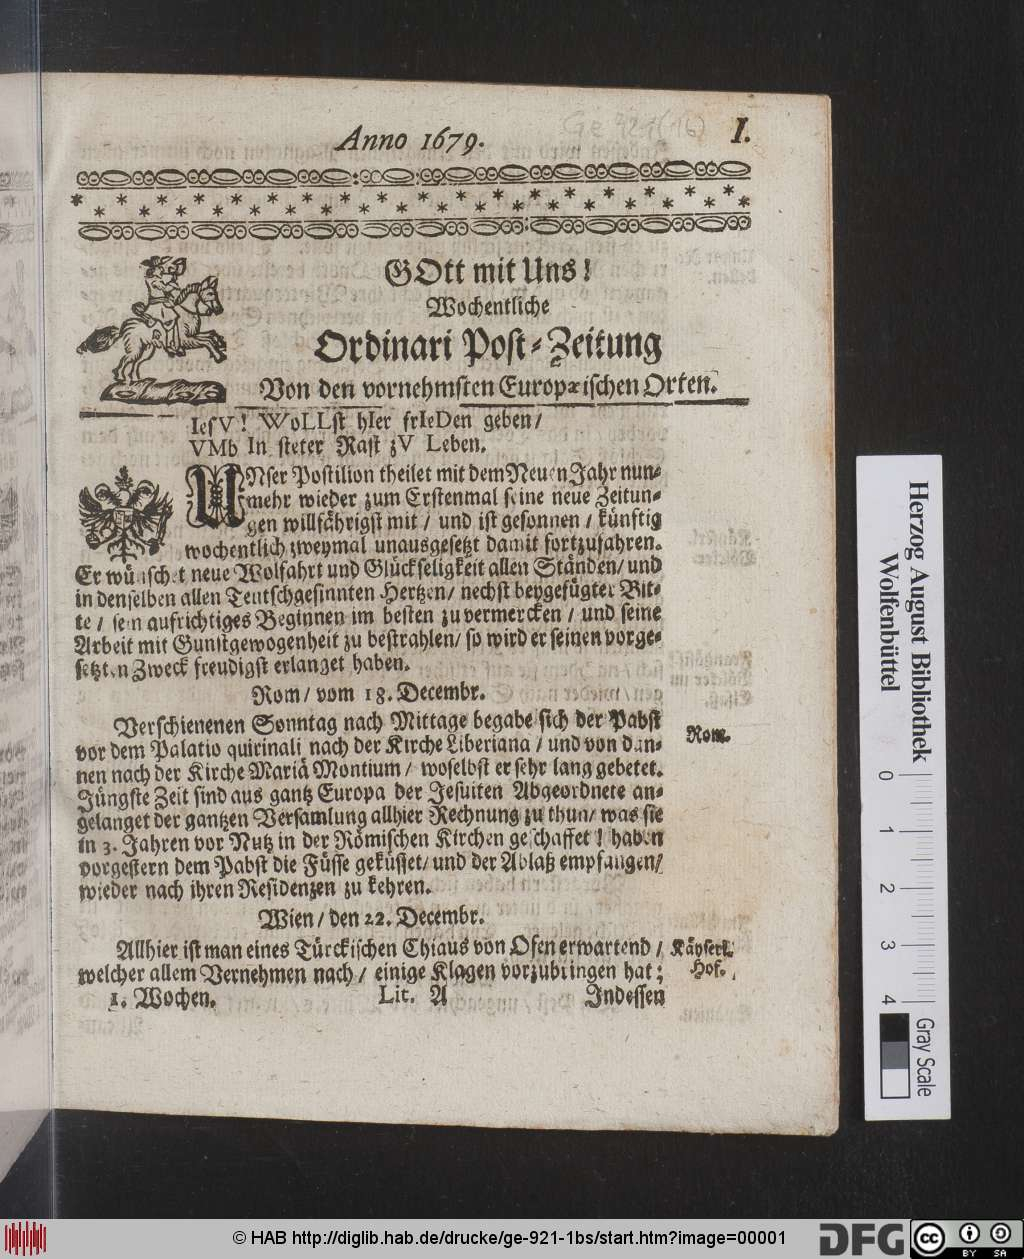 Anno 1679.
I.
Ge 921 (16)
GOtt mit Uns!
Wochentliche
Ordinari Post-Zeitung
Von den vornehmsten Europæischen Orten.
IesV! WoLLst hIer frIeDen geben/
VMb In steter Rast zV Leben.
UNser Postilion theilet mit dem Neuen Jahr nun-
mehr wieder zum Erstenmal seine neue Zeitun-
gen willfährigst mit / und ist gesonnen / künftig
wochentlich zweymal unausgesetzt damit fortzufahren.
Er wünschet neue Wolfahrt und Glückseligkeit allen Ständen/ und
in denselben allen Teutschgesinnten Hertzen/ nechst beygefügter Bit-
te / sein aufrichtiges Beginnen im besten zu vermercken / und seine
Arbeit mit Gunstgewogenheit zu bestrahlen/ so wird er seinen vorge-
setzten Zweck freudigst erlanget haben.
Rom/ vom 18. Decembr.
Verschienenen Sonntag nach Mittage begabe sich der Pabst
Rom.
vor dem Palatio quirinali nach der Kirche Liberiana / und von dan-
nen nach der Kirche Mariä Montium / woselbst er sehr lang gebetet.
Jüngste Zeit sind aus gantz Europa der Jesuiten Abgeordnete an-
gelanget der gantzen Versamlung allhier Rechnung zu thun/ was sie
in 3. Jahren vor Nutz in der Römischen Kirchen geschaffet / haben
vorgestern dem Pabst die Füsse geküsset/ und der Ablaß empfangen/
wieder nach ihren Residenzen zu kehren.
Wien / den 22. Decembr.
Allhier ist man eines Türckischen Chiaus von Ofen erwartend /
Käyserl.
Hof.
welcher allem Vernehmen nach / einige Klagen vorzubringen hat;
1. Wochen.
Lit. A
Indessen
Herzog August Bibliothek
Wolfenbüttel
0 1 2 3 4
Gray Scale
© HAB http://diglib.hab.de/drucke/ge-921-1bs/start.htm?image=00001
DFG
cc BY SA